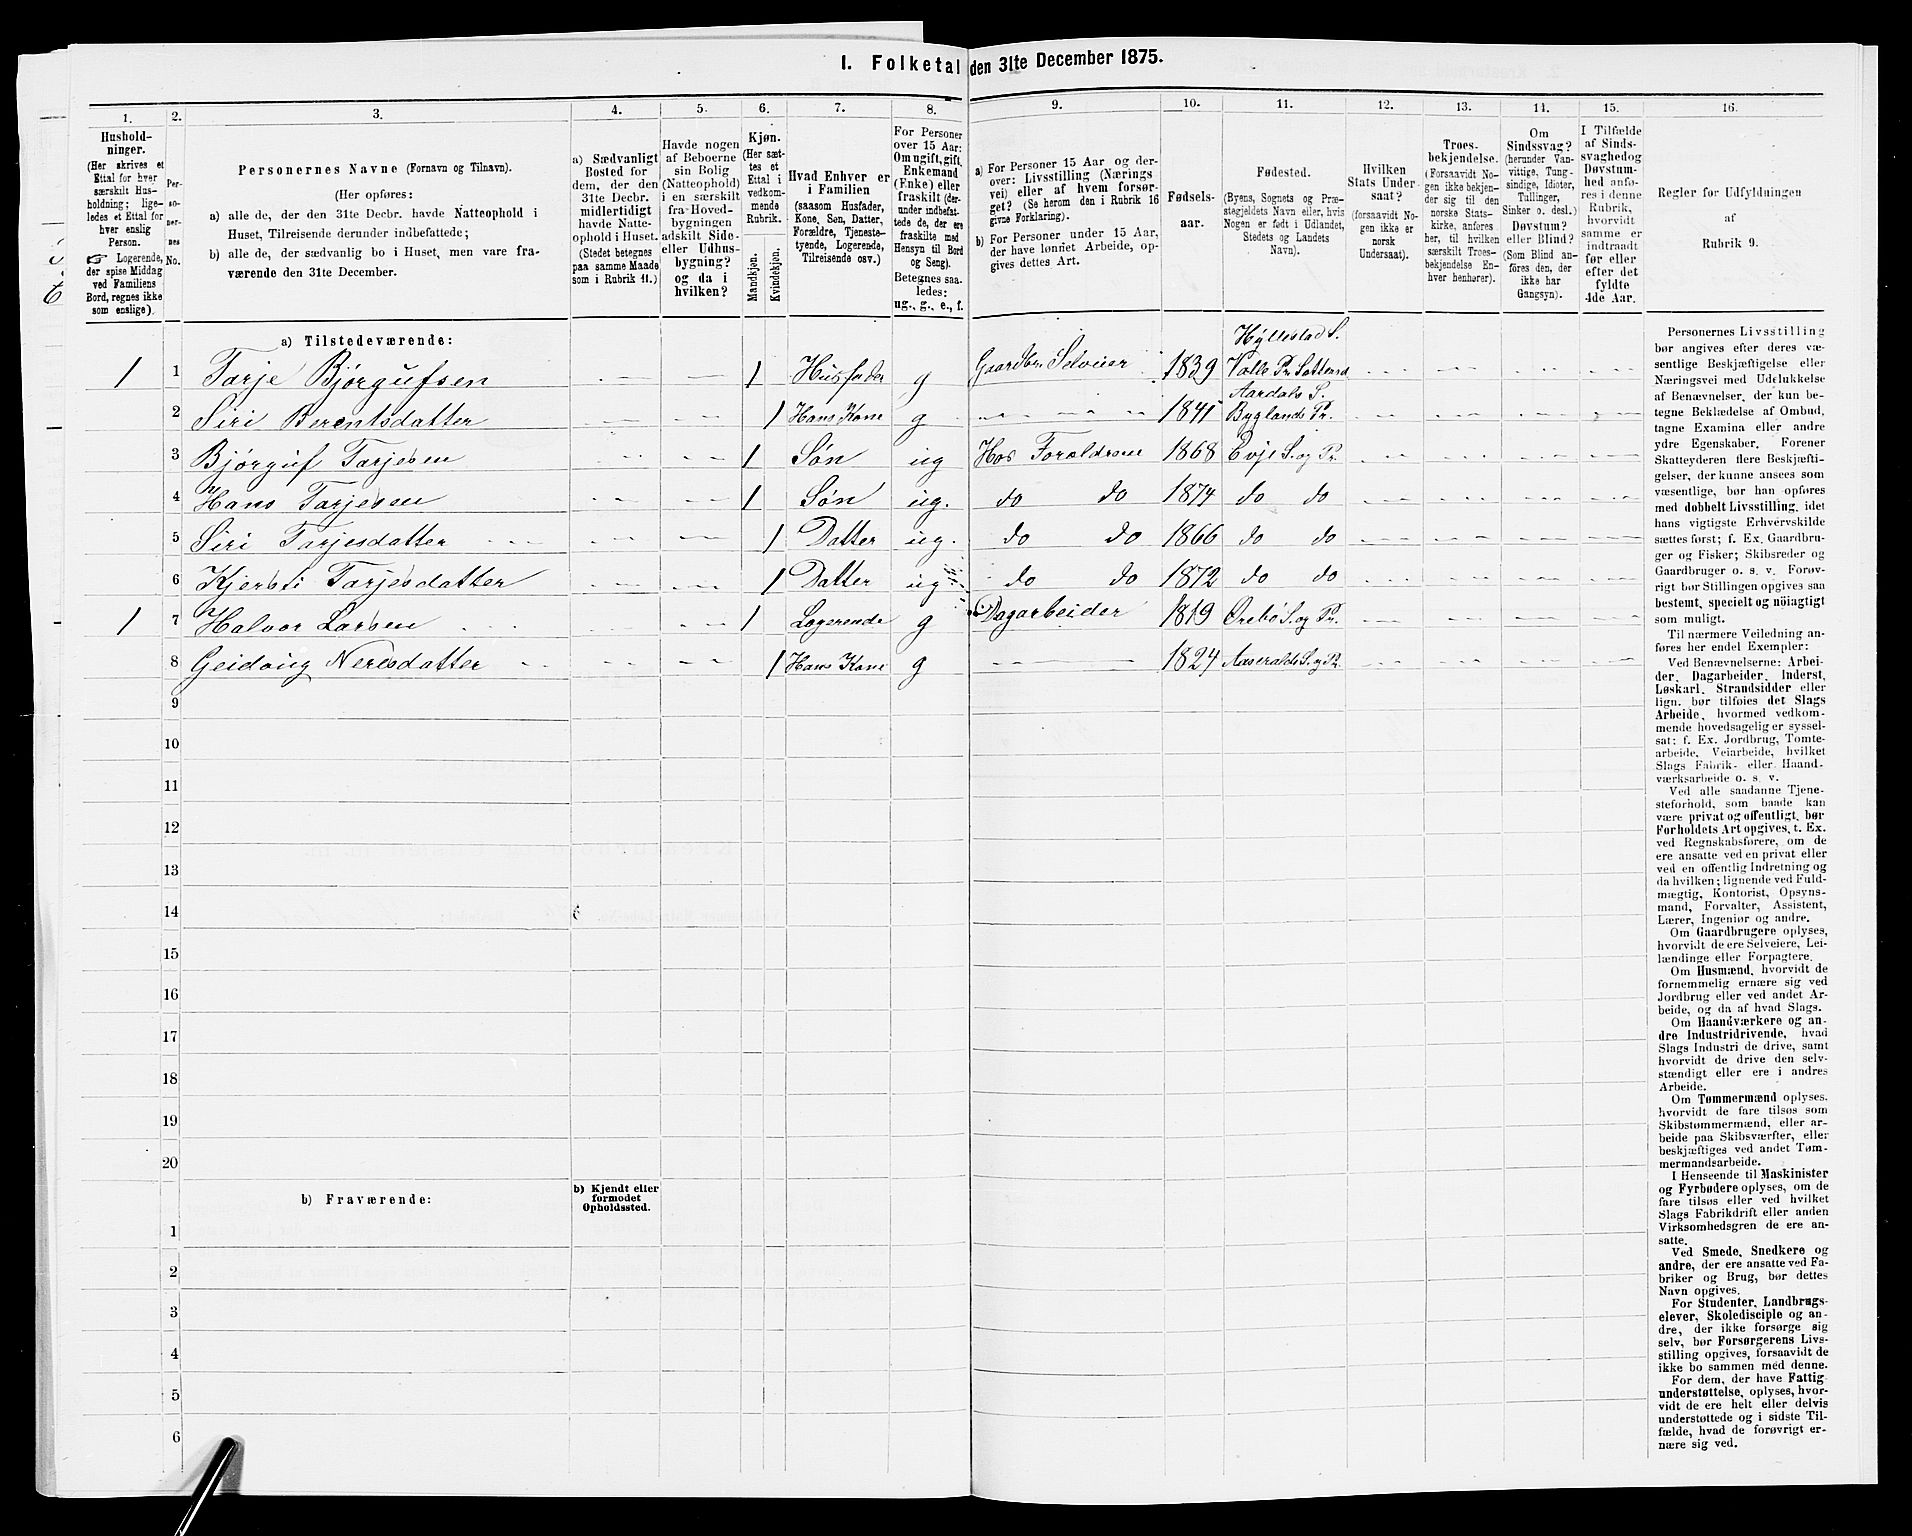 I. Folketal den 31te December 1875.
1. 2. 3. 4. 5. 6. 7. 8. 9. 10. 11. 12. 13. 14. 15. 16.
Hushold-
ninger.
(Her skrives et
Ettal for hver
særskilt Hus-
holdning; lige-
ledes et Ettal for
hver enslig
Person.
Logerende,
der spise Middag
ved Familiens
Bord, regnes ikke
som enslige).
Per-
so-
ner-
nes
No.
Personernes Navne (Fornavn og Tilnavn).
(Her opføres:
a) alle de, der den 31te Decbr. havde Natteophold i
Huset, Tilreisende derunder indbefattede;
b) alle de, der sædvanlig bo i Huset, men vare fra-
værende den 31te December.
a) Sædvanligt
Bosted for
dem, der den
31te Decbr.
midlertidigt
havde Natte-
ophold i Huset.
(Stedet betegnes
paa samme Maade
som i Rubrik 11.)
Havde nogen
af Beboerne
sin Bolig
(Natteophold)
i en særskilt
fra Hoved-
bygningen
adskilt Side-
eller Udhus-
bygning?
og da i
hvilken?
Kjøn.
(Her sæt-
tes et
Ettal i
vedkom-
mende
Rubrik.
Mandkjøn.
Kvindekjøn.
Hvad Enhver er
i Familien
(saasom Husfader,
Kone, Søn, Datter,
Forældre, Tjeneste-
tyende, Logerende,
Tilreisende osv.)
For Personer
over 15 Aar:
Om ugift, gift,
Enkemand
(Enke) eller
fraskilt (der-
under indbefat-
tede de, der ere
fraskilte med
Hensyn til Bord
og Seng).
Betegnes saa-
ledes:
ug., g., e., f.
a) For Personer 15 Aar og der-
over: Livsstilling (Nærings
vei) eller af hvem forsør-
get? (Se herom den i Rubrik 16
givne Forklaring).
b) For Personer under 15 Aar,
der have lønnet Arbeide, op-
gives dettes Art.
Fødsels-
aar.
Fødested.
(Byens, Sognets og Præ-
stegjeldets Navn eller, hvis
Nogen er født i Udlandet,
Stedets og Landets
Navn).
Hvilken
Stats Under-
saat?
(forsaavidt No-
gen ikke er
norsk
Undersaat).
Troes-
bekjendelse.
(Forsaavidt No-
gen ikke bekjen-
der sig til den
norske Stats-
kirke, anføres
her, til hvilken
særskilt Troes-
bekjendelse En-
hver henhører).
Om
Sindssvag?
(herunder Van-
vittige, Tung-
sindige, Idioter,
Tullinger,
Sinker o. desl.)
Døvstum?
eller Blind?
(Som Blind an-
føres den, der
ikke har
Gangsyn).
I Tilfælde
af Sinds-
svaghed og
Døvstum-
hed anfø-
res i denne
Rubrik,
hvorvidt
samme er
indtraadt
før eller
efter det
fyldte
4de Aar.
Regler for Udfyldningen
af
Rubrik 9.
a) Tilstedeværende:
1 1 Tarje Bjørgufsen 1 Husfader g Gaardbr. Selveier 1839 Hyllestad S. Valle Pr. Sættersd
2 Siri Berentsdatter 1 Hans Kone g 1841 Aardals S. Byglands Pr.
3 Bjørguf Tarjesen 1 Søn ug Hos Forældrene 1868 Evje S. og Pr.
4 Hans Tarjesen 1 Søn ug. do do 1874 do do
5 Siri Tarjesdatter 1 Datter ug. do do 1866 do do
6 Kjersti Tarjesdatter 1 Datter ug. do do 1872 do do
1 7 Halvor Larsen 1 Logerende g Dagarbeider 1819 Órebö S. og Pr.
8 Geidoug Neresdatter 1 Hans Kone g 1824 Aaseralds S. og Pr.
9
10
11
12
13
14
15
16
17
18
19
20
b) Fraværende:
b) Kjendt eller
formodet
Opholdssted.
1
2
3
4
5
6
Personernes Livsstilling
bør angives efter deres væ-
sentlige Beskjæftigelse eller
Næringsvei med Udelukkelse
af Benævnelser, der kun be-
tegne Beklædelse af Ombud,
tagne Examina eller andre
ydre Egenskaber. Forener
Skatteyderen flere Beskjæfti-
gelser, der kunne ansees som
væsentlige, bør han opføres
med dobbelt Livsstilling, idet
hans vigtigste Erhvervskilde
sættes først; f. Ex. Gaardbru-
ger og Fisker; Skibsreder og
Gaardbruger o. s. v. Forøv-
rigt bør Stillingen opgives saa
bestemt, specielt og nøiagtigt
som muligt.
Til nærmere Veiledning an-
føres her endel Exempler:
Ved Benævnelserne: Arbei-
der, Dagarbeider, Inderst,
Løskarl, Strandsidder eller
lign. bør tilføies det Slags
Arbeide, hvormed vedkom-
mende hovedsagelig er syssel-
sat; f. Ex. Jordbrug, Tomte-
arbeide, Veiarbeide, hvilket
Slags Fabrik- eller Haand-
værksarbeide o. s. v.
Ved alle saadanne Tjene-
steforhold, som baade kan
være privat og offentligt, bør
Forholdets Art opgives, t. Ex.
ved Regnskabsførere, om de
ere ansatte ved en privat eller
ved en offentlig Indretning og
da hvilken; lignende ved Fuld-
mægtig, Kontorist, Opsyns-
mand, Forvalter, Assistent,
Lærer, Ingeniør og andre.
Om Gaardbrugere oplyses,
hvorvidt de ere Selveiere, Lei-
lændinge eller Forpagtere.
Om Husmænd, hvorvidt de
fornemmelig ernære sig ved
Jordbrug eller ved andet Ar-
beide, og da af hvad Slags.
Om Haandværkere og an-
dre Industridrivende, hvad
Slags Industri de drive, samt
hvorvidt de drive den selv-
stændigt eller ere i andres
Arbeide.
Om Tømmermænd oplyses,
hvorvidt de fare tilsøs som
Skibstømmermænd, eller ar-
beide paa Skibsværfter, eller
beskjæftiges ved andet Tøm-
mermandsarbeide.
I Henseende til Maskinister
og Fyrbødere oplyses, om de
fare tilsøs eller ved hvilket
Slags Fabrikdrift eller anden
Virksomhedsgren de ere an-
satte.
Ved Smede, Snedkere og
andre, der ere ansatte ved Fa-
briker og Brug, bør dettes
Navn opgives.
For Studenter, Landbrugs-
elever, Skoledisciple og an-
dre, der ikke forsørge sig
selv, bør Forsørgerens Livs-
stilling opgives, forsaavidt de
ikke bo sammen med denne.
For dem, der have Fattig-
understøttelse, oplyses, hvor-
vidt de ere helt eller delvis
understøttede og i sidste Til-
fælde, hvad de forøvrigt er-
nære sig ved.